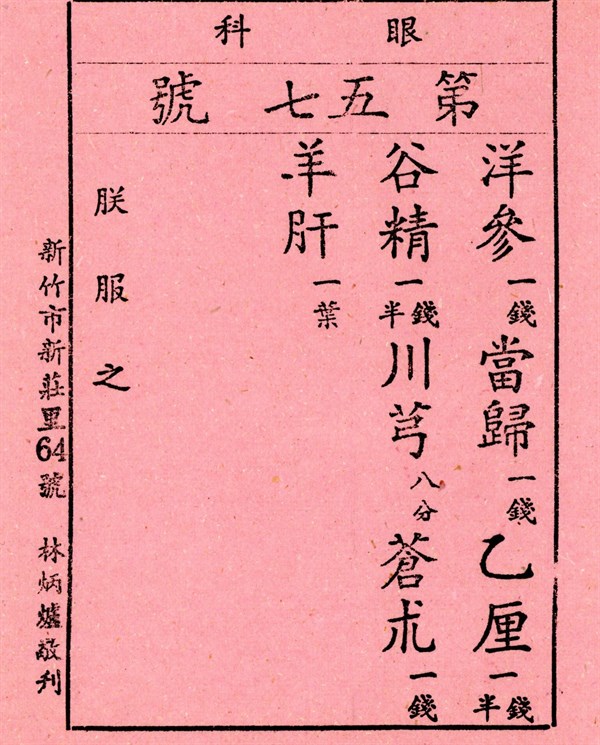 眼科
第五七號
洋參一錢 當歸一錢 乙厘一錢半
谷精一錢半 川芎八分 蒼朮一錢
羊肝一葉
朕服之
新竹市新莊里64號 林炳爐敬刋